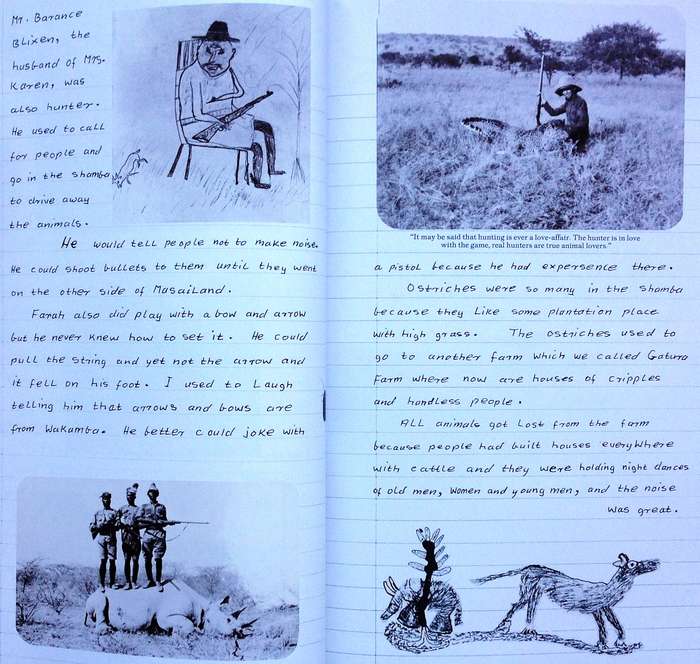 Mr. Barance
Blixen, the
husband of Mrs.
Karen, was
also hunter.
He used to call
for people and
go in the shamba
to drive away
the animals.
He would tell people not to make noise.
He could shoot bullets to them until they went
on the other side of Masailand.
Farah also did play with a bow and arrow
but he never knew how to set it. He could
pull the string and yet not the arrow and
it fell on his foot. I used to Laugh
telling him that arrows and bows are
from Wakamba. He better could joke with
"It may be said that hunting is ever a love-affair. The hunter is in love
with the game, real hunters are true animal lovers."
a pistol because he had expersence there.
Ostriches were so many in the shamba
because they Like some plantation place
with high grass. The ostriches used to
go to another farm which we called Gaturo
Farm where now are houses of cripples
and handless people.
ALL animals got Lost from the farm
because people had built houses everywhere
with cattle and they were holding night dances
of old men, women and young men, and the noise
was great.